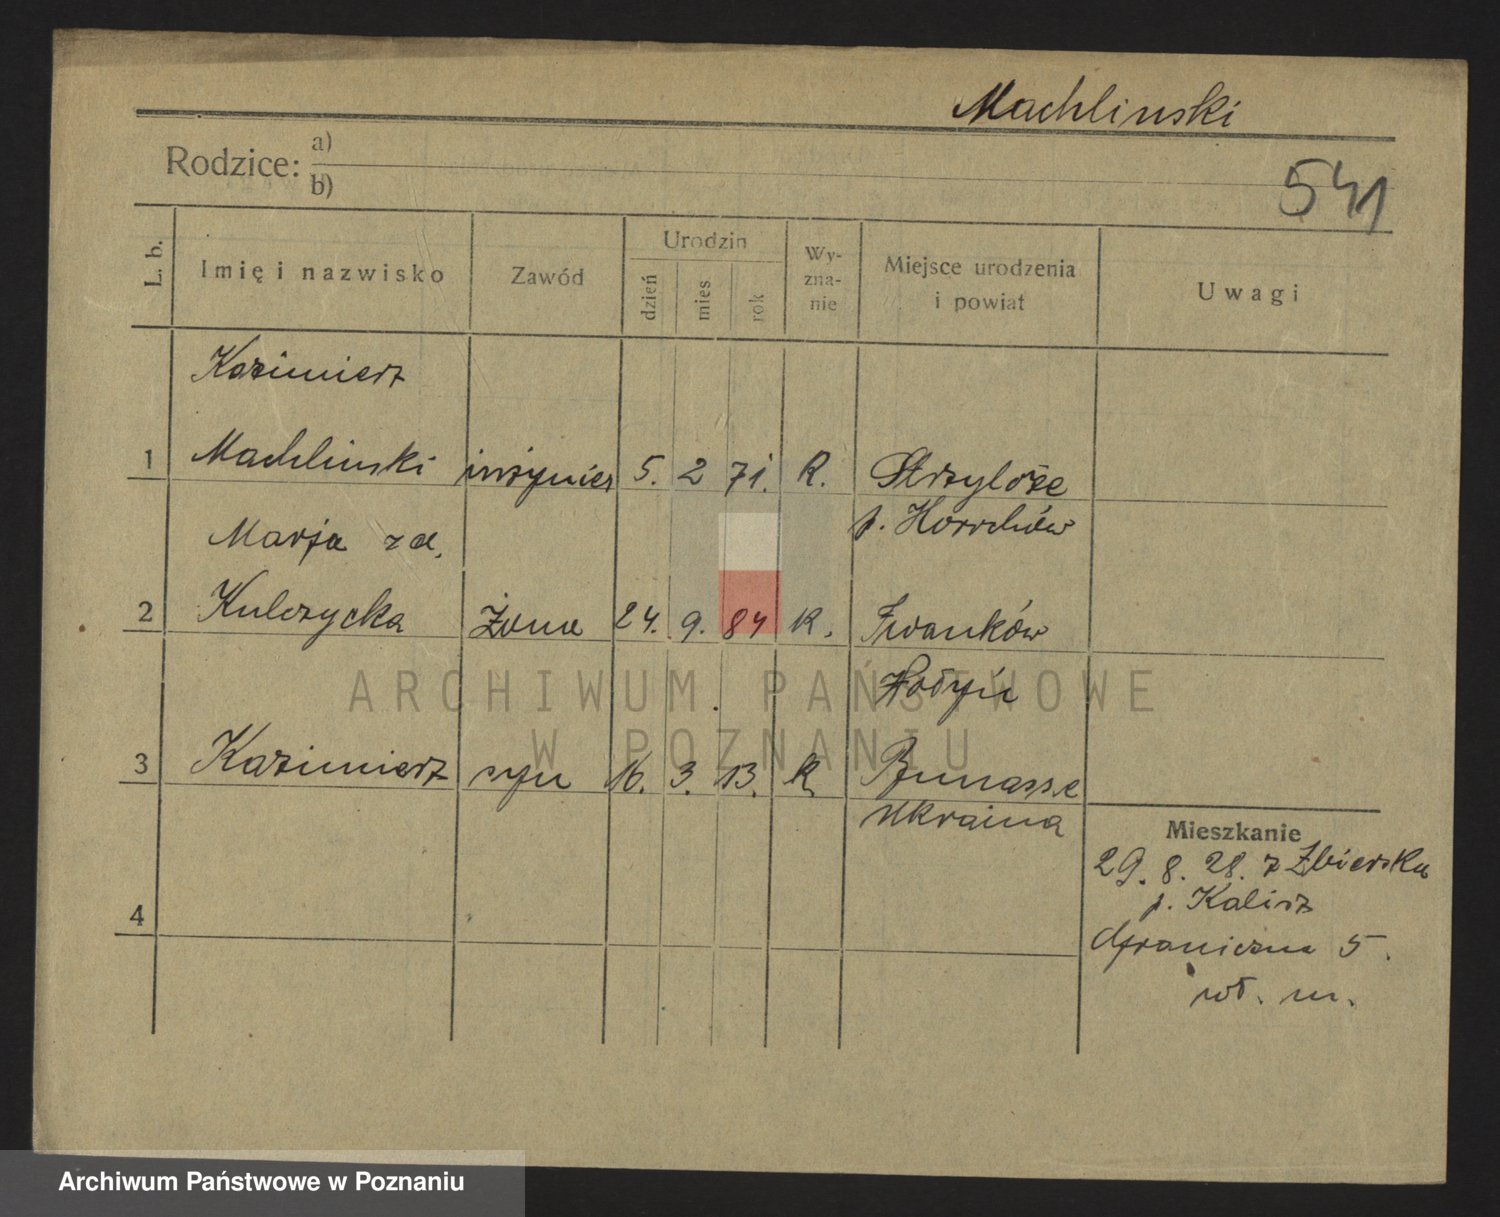 Machlinski
Rodzice: a)
b)
541
L. b.
Imię i nazwisko
Zawód
Urodzin
dzień
mies
rok
Wy-
zna-
nie
Miejsce urodzenia
i powiat
Uwagi
Kazimierz
1 Machlinski inżynier 5. 2 71. R.
p. Horochów
Marja z d.
2 Kulczycka Żona 24. 9. 84 R. Iwanków
Wołyń
3 Kazimierz syn 16. 3. 13. R
Ukraina
4
Mieszkanie
29. 8. 28. z Zbierska
p. Kalisz
Graniczna 5.
wł. m.
ARCHIWUM PAŃSTWOWE
W POZNANIU
Archiwum Państwowe w Poznaniu